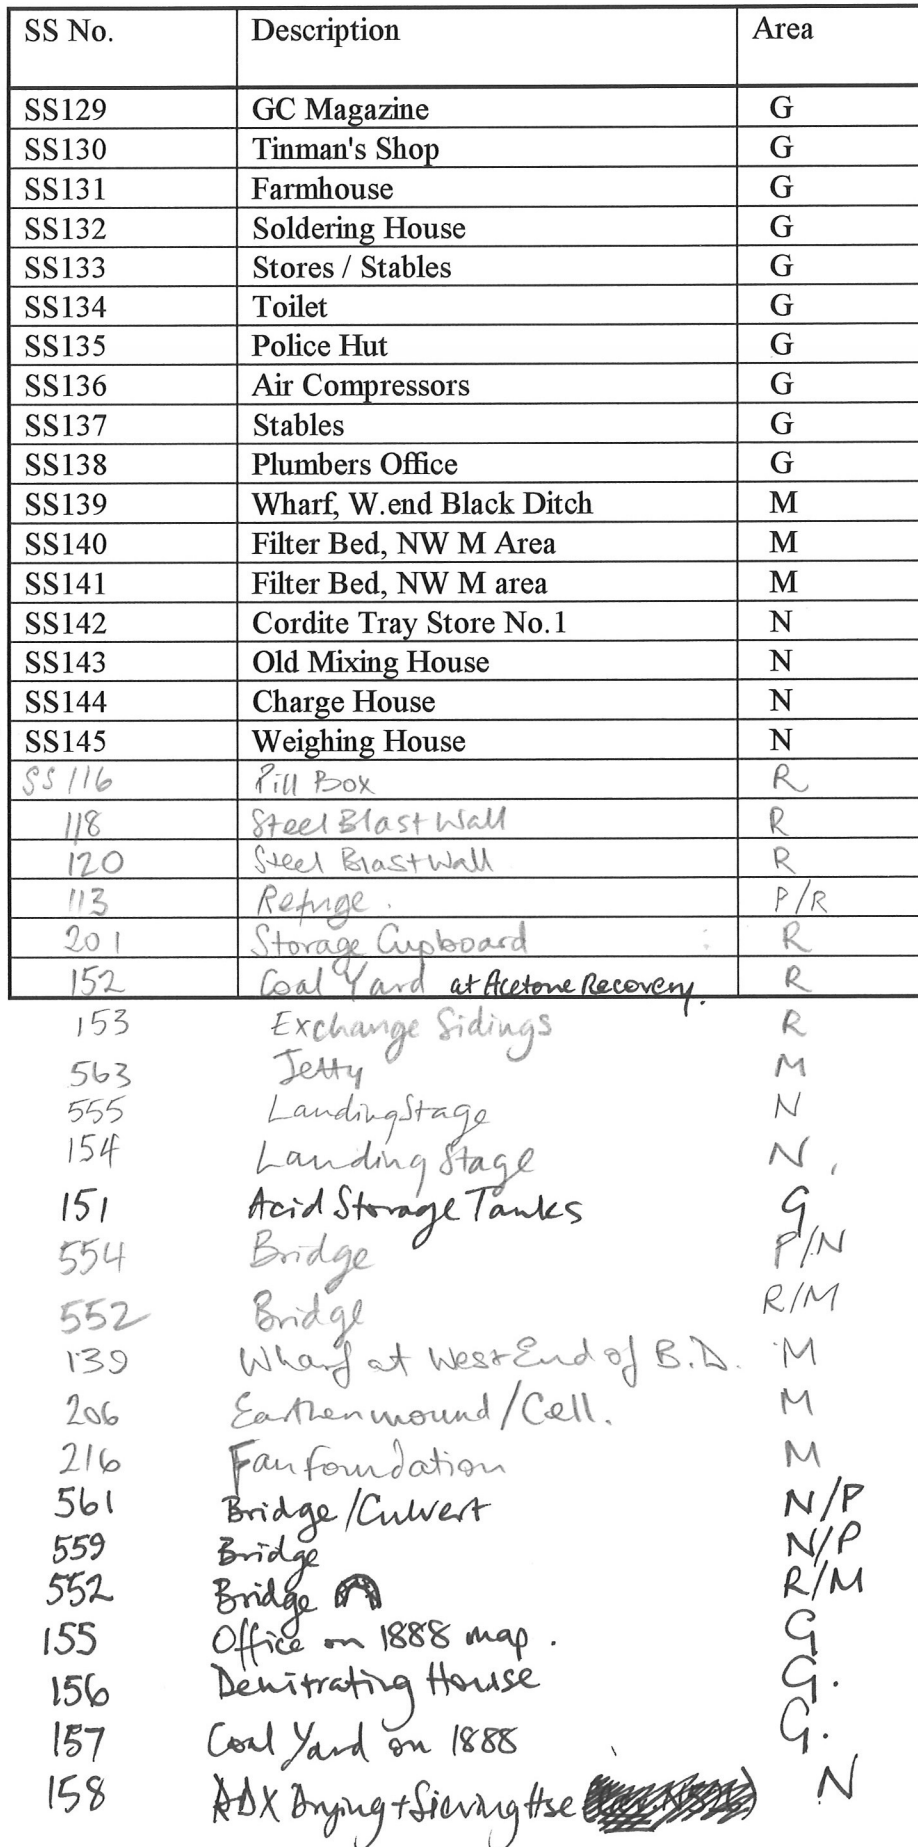 SS No. Description Area
SS129 GC Magazine G
SS130 Tinman's Shop G
SS131 Farmhouse G
SS132 Soldering House G
SS133 Stores / Stables G
SS134 Toilet G
SS135 Police Hut G
SS136 Air Compressors G
SS137 Stables G
SS138 Plumbers Office G
SS139 Wharf, W.end Black Ditch M
SS140 Filter Bed, NW M Area M
SS141 Filter Bed, NW M area M
SS142 Cordite Tray Store No.1 N
SS143 Old Mixing House N
SS144 Charge House N
SS145 Weighing House N
SS116 Pill Box R
118 Steel Blast Wall R
120 Steel Blast Wall R
113 Refuge. P/R
201 Storage Cupboard R
152 Coal Yard at Acetone Recovery. R
153 Exchange Sidings R
563 Jetty M
555 Landing Stage N
154 Landing Stage N
151 Acid Storage Tanks G
554 Bridge P/N
552 Bridge R/M
139 Wharf at West End of B.D. M
206 Earthen mound/Cell. M
216 Fan foundation M
561 Bridge/Culvert N/P
559 Bridge N/P
552 Bridge R/M
155 Office on 1888 map. G
156 Denitrating House G.
157 Coal Yard on 1888 G.
158 Drying + Sieving Hse N